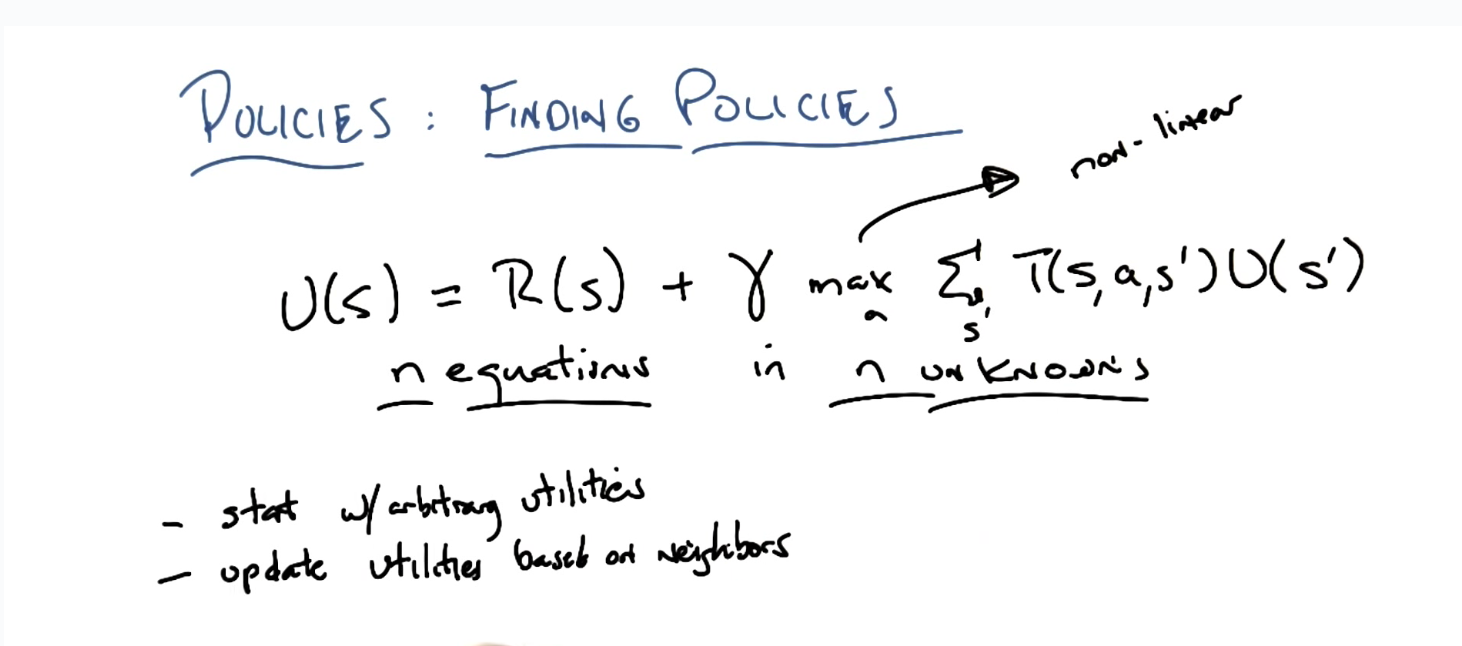 POLICIES : FINDING POLICIES
non-linear
U(s) = R(s) + γ max Σ T(s,a,s')U(s')
a s'
n equations in n unknowns
- start w/ arbitrary utilities
- update utilities based on neighbors